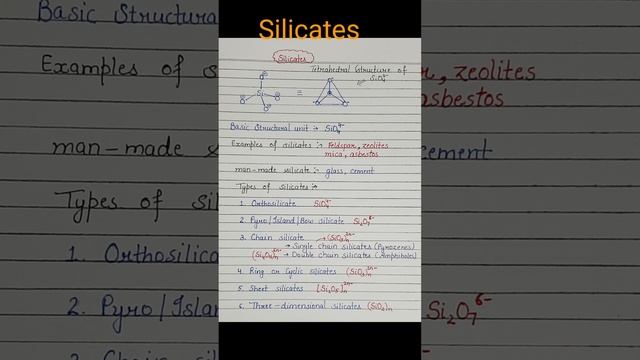 Silicates
Silicates
Tetrahedral Structure of
SiO₄⁴⁻
O⁻
Si
O⁻
O⁻
O⁻
=
Basic Structural unit :- SiO₄⁴⁻
Examples of silicates :- Feldspar, zeolites
mica, asbestos
man-made silicate :- glass, cement
Types of silicates :-
1. Orthosilicate SiO₄⁴⁻
2. Pyro/Island/Bow silicate Si₂O₇⁶⁻
3. Chain silicate (SiO₃)ₙ²ⁿ⁻
→ Single chain silicates (Pyroxenes)
→ Double chain silicates (Amphiboles)
4. Ring or Cyclic silicates (SiO₃)ₙ²ⁿ⁻
5. Sheet silicates [Si₂O₅]ₙ²ⁿ⁻
6. Three-dimensional silicates (SiO₂)ₙ
Basic Structural
Examples of si
r, zeolites
asbestos
man-made s
cement
Types of sil
1. Orthosilica
2. Pyro/Island
Si₂O₇⁶⁻
3. Chain sili